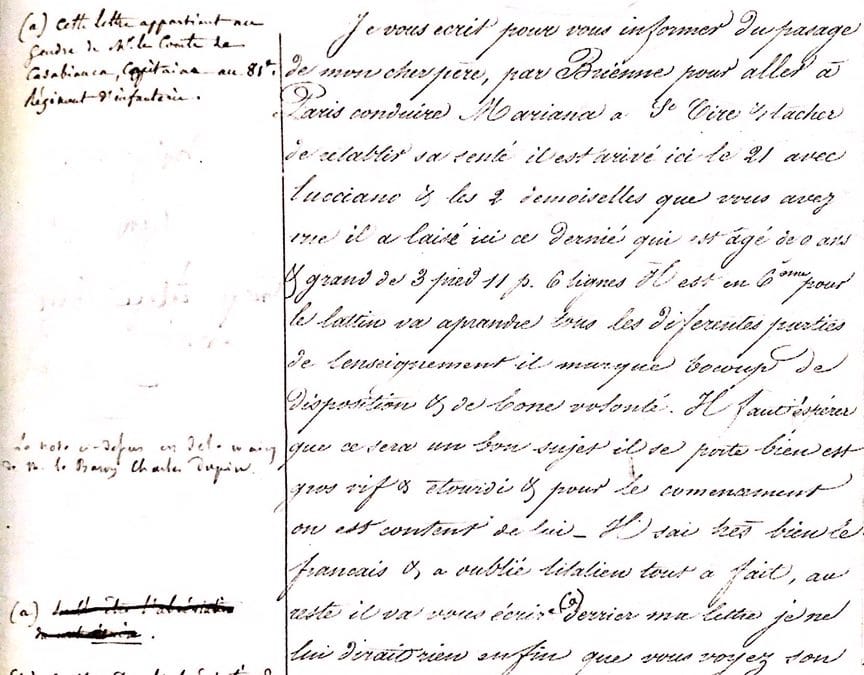 (a) Cette lettre appartient au
Gendre de Mr. le Comte de
Casabianca, Capitaine au 81e.
Régiment d'infanterie.
Je vous ecrit pour vous informer du pasage
de mon cher père, par Brienne pour aller à
Paris conduire Mariana a St Cire & tacher
de retablir sa senté il est arivé ici le 21 avec
Lucciano & les 2 demoiselles que vous avez
vue il a laisé ici ce dernié qui est âgé de 9 ans
& grand de 3 pied 11 p. 6 lignes Il est en 6eme pour
le lattin va aprandre tous les diferentes parties
de lenseignement il marque bocoup de
disposition & de bone volonté. Il faut espérer
que ce sera un bon sujet il se porte bien est
gros vif & étourdi & pour le comencament
on est content de lui _ Il sai très bien le
francais & a oublié litalien tout a fait, au
reste il va vous écrire (a) derrier ma lettre je ne
lui dirait rien enfin que vous voyez son
La note ci-dessus est de la main
de M. le Baron Charles Dupin.
(a)